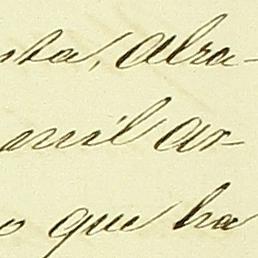 sta, alra-
mil ar-
o que ha